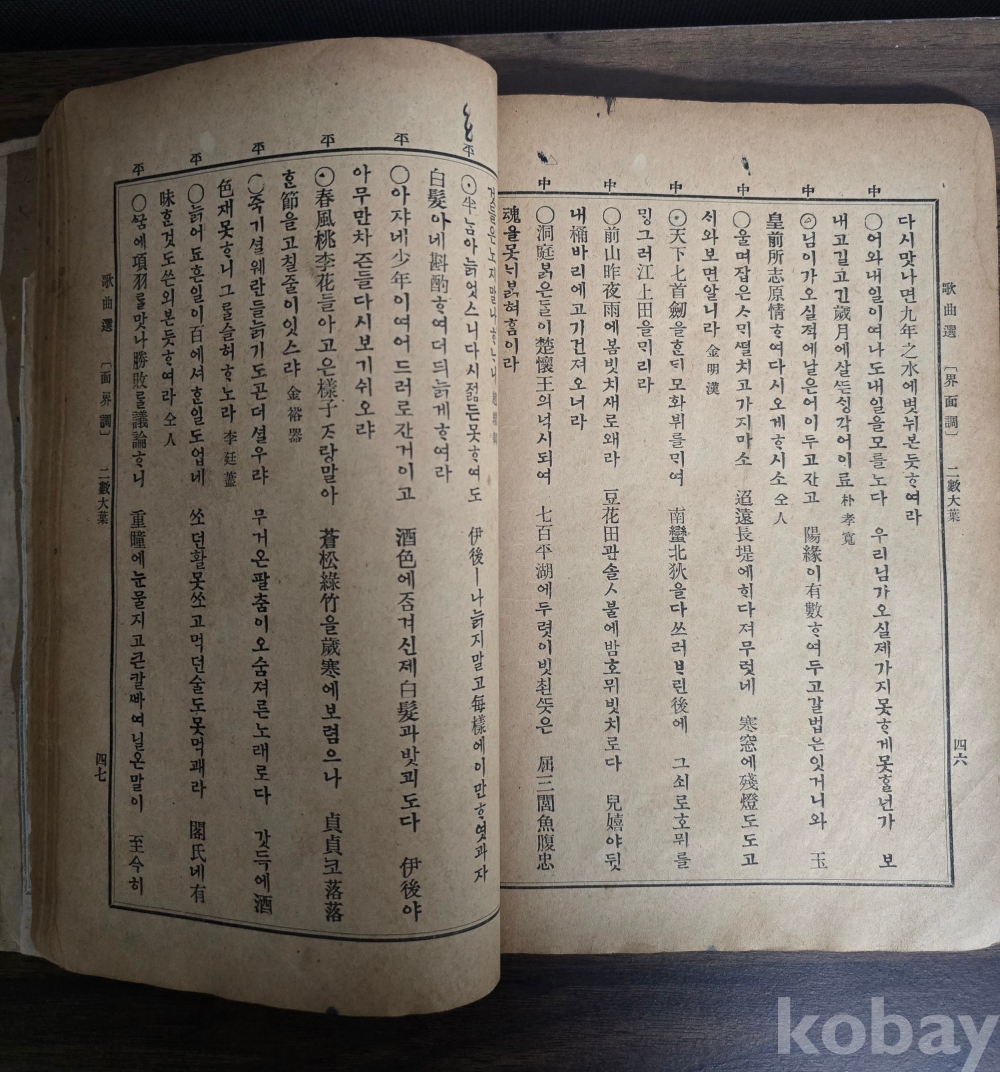 歌曲選 〔界面調〕 二數大葉 四六
다시맛나면九年之水에벗뉘본듯ᄒᆞ여라
中
○어와내일이여나도내일을모를노다 우리님가오실제가지못ᄒᆞ게못ᄒᆞᆯ넌가 보
내고길고긴歲月에살ᄯᅳᆺᄉᆡᆼ각어이료 朴孝寬
中
님이가오실적에날은어이두고간고 陽緣이有數ᄒᆞ여두고갈법은잇거니와 玉
皇前所志原情ᄒᆞ여다시오게ᄒᆞ시소 仝人
中
○울며잡은ᄉᆞᄆᆡᄯᅥᆯ치고가지마소 迢遠長堤에ᄒᆡ다져무럿네 寒窓에殘燈도도고
서와보면알니라 金明漢
中
天下匕首劍을ᄒᆞᆫᄃᆡ모화뷔를ᄆᆡ여 南蠻北狄을다쓰러ᄇᆞ린後에 그쇠로호뮈를
ᄆᆡᆼ그러江上田을ᄆᆡ리라
中
○前山昨夜雨에봄빗치새로왜라 豆花田관솔ㅅ불에밤호뮈빗치로다 兒嬉야뒷
내桶바리에고기건져오너라
中
○洞庭붉은ᄃᆞᆯ이楚懷王의넉시되여 七百平湖에두렷이빗쵠ᄯᅳᆺ은 屈三閭魚腹忠
魂을못ᄂᆡ붉혀홈이라
平
늙엇스니다시젊든못ᄒᆞ여도 伊後ㅣ나늙지말고每樣에이만ᄒᆞ엿과쟈
白髮아네斟酌ᄒᆞ여더듸늙게ᄒᆞ여라
平
○아쟈네少年이여어드러로간거이고 酒色에ᄌᆞᆷ겨신제白髮과밧괴도다 伊後야
아무만차즌들다시보기쉬오랴
平
春風桃李花들아고은樣子ᄌᆞ랑말아 蒼松綠竹을歲寒에보렴으나 貞貞코落落
ᄒᆞᆫ節을고칠줄이잇스랴 金裕器
平
○죽기셜웨란들늙기도곤더셜우랴 무거온팔춤이오숨져른노래로다 갓득에酒
色채못ᄒᆞ니그를슬허ᄒᆞ노라 李廷藎
平
○늙어됴흔일이百에셔ᄒᆞᆫ일도업네 쏘던활못쏘고먹던술도못먹괘라 閣氏네有
味ᄒᆞᆫ것도쓴외본듯ᄒᆞ여라 仝人
平
○ᄭᅮᆷ에項羽를맛나勝敗를議論ᄒᆞ니 重瞳에눈물지고큰칼ᄲᅡ여닐온말이 至今히
歌曲選 〔面界調〕 二數大葉 四七
kobay